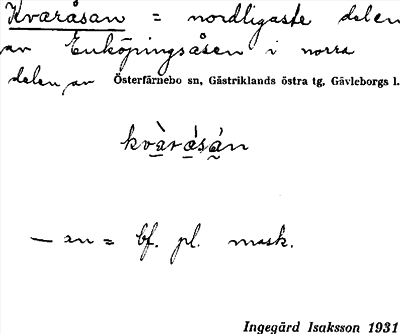 Kvaråsan = nordligaste delen
av Enköpingsåsen i norra
delen av Österfärnebo sn, Gästriklands östra tg, Gävleborgs l.
kvàrásán
— an = bf. pl. mask.
Ingegärd Isaksson 1931